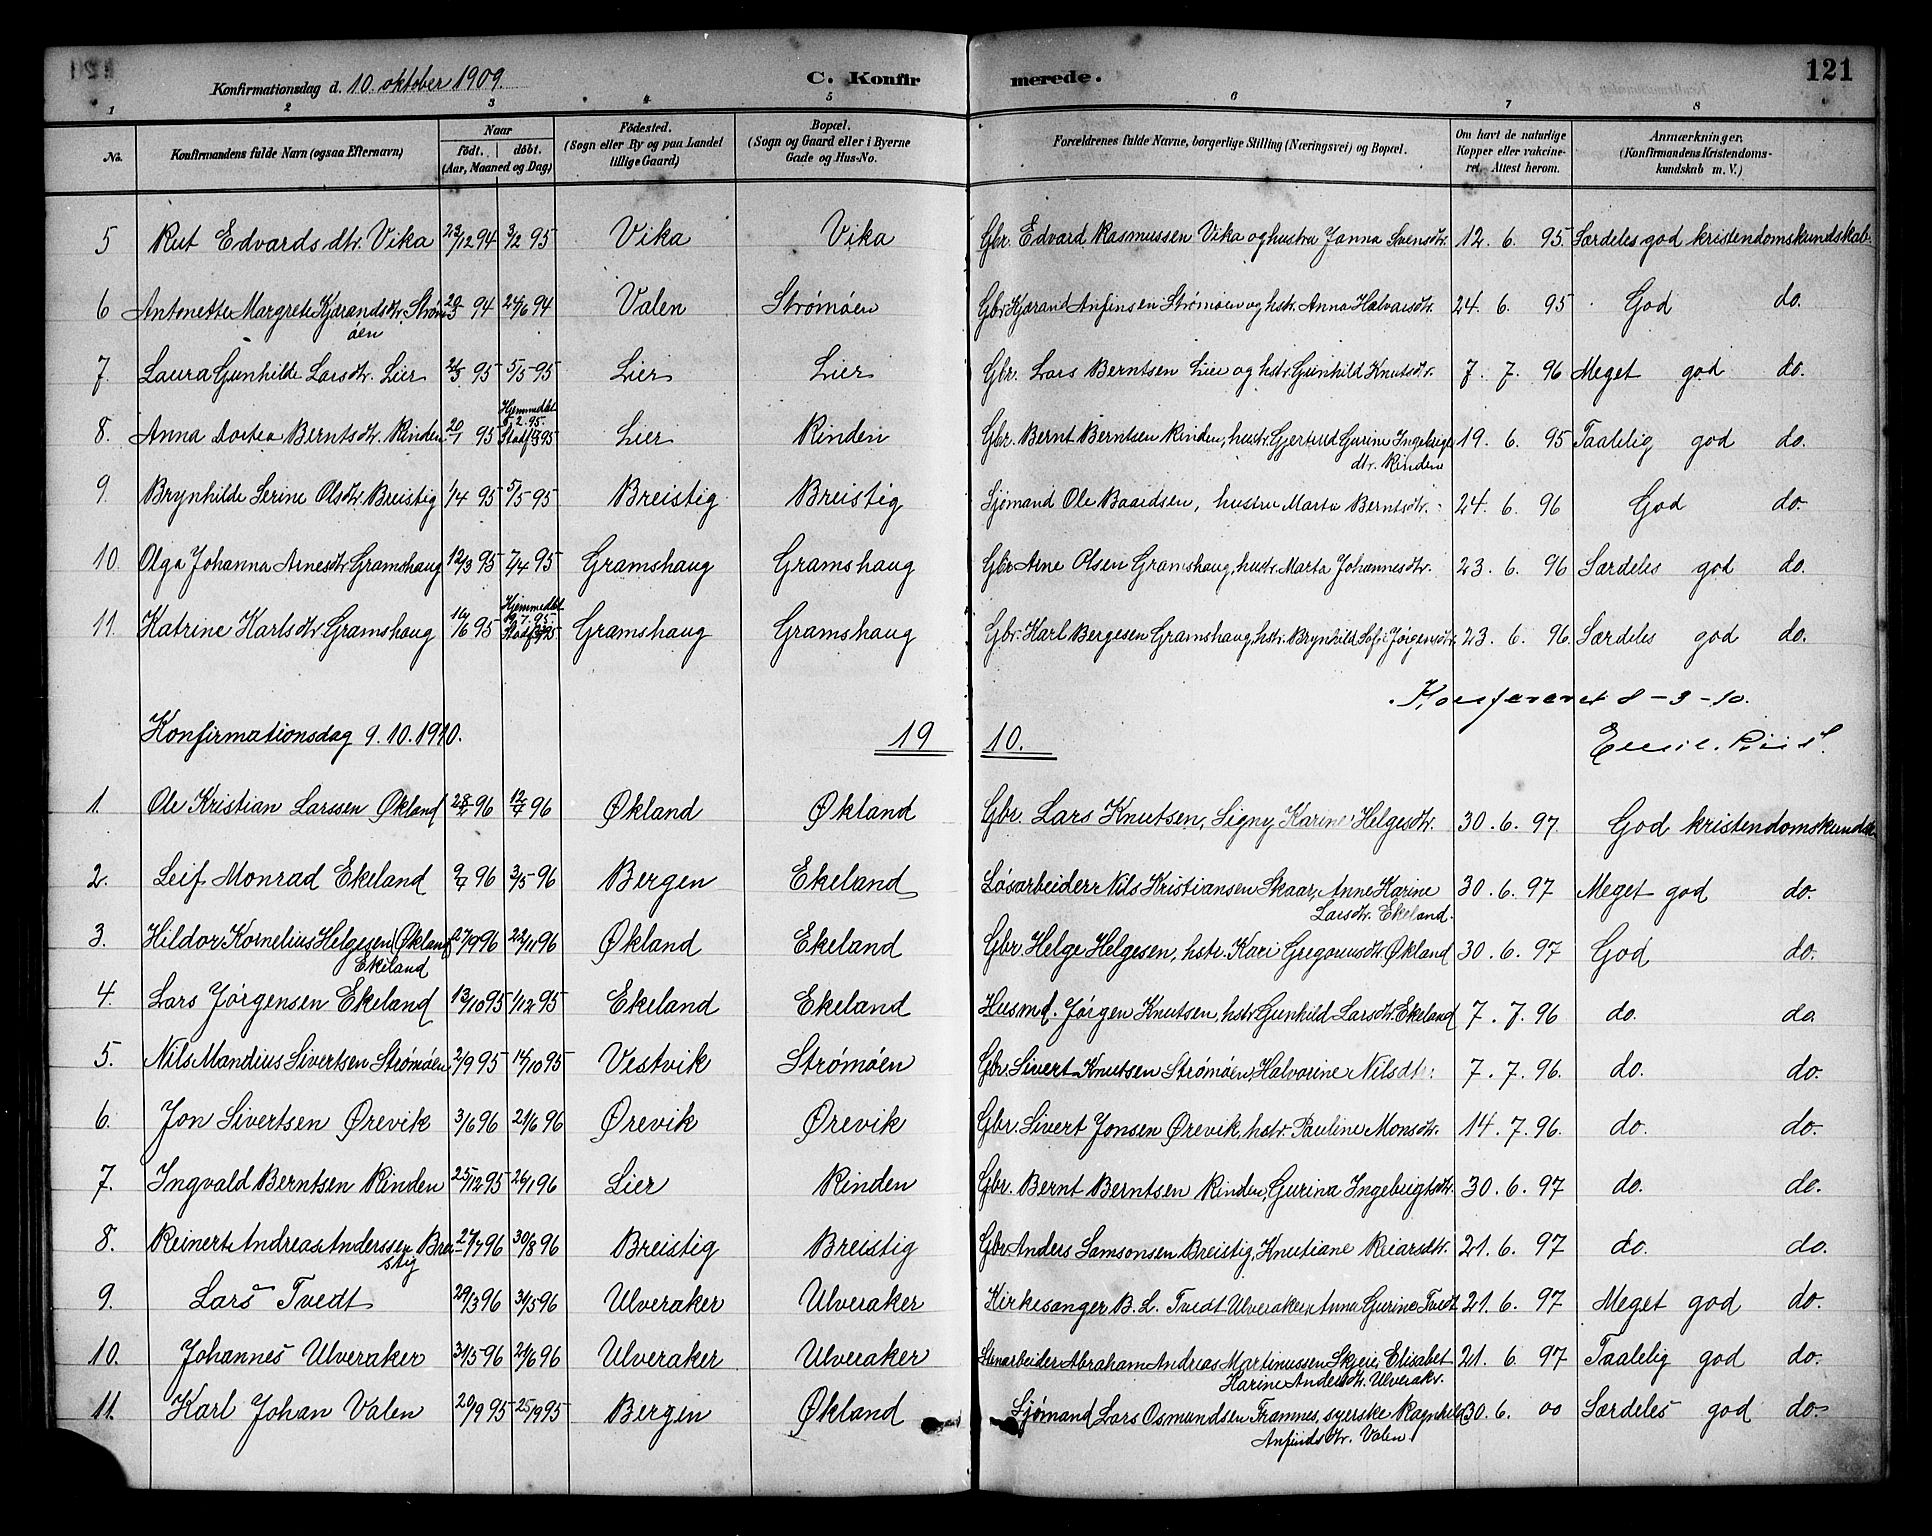 121
Konfirmationsdag d. 10. oktober 1909. C. Konfirmerede.
1 2 3 4 5 6 7 8
No. Konfirmandens fulde Navn (ogsaa Efternavn) Naar födt. döbt. (Aar, Maaned og Dag) Födested. (Sogn eller By og paa Landet tillige Gaard) Bopæl. (Sogn og Gaard eller i Byerne Gade og Hus-No. Forældrenes fulde Navne, borgerlige Stilling (Næringsvei) og Bopæl. Om havt de naturlige Kopper eller vakcineret. Attest herom. Anmærkninger. (Konfirmandens Kristendomskundskab m. V.)
5 Rut Edvardsdtr. Vika 23/12 94 3/2 95 Vika Vika Gbr. Edvard Rasmussen Vika og hustru Janna Svensdtr. 12. 6. 95. Særdeles god kristendomskundskab.
6 Antonette Margrete Kjærandsdtr. Strømöen 94 24/6 94 Valen Strømöen Gbr. Kjærand Anfinsen Strømöen og hstr. Anna Halvarsdtr. 24. 6. 95 God do.
7. Laura Gunhilde Larsdtr. Lier 95 5/5 95 Lier Lier Gbr. Lars Berntsen Lier og hstr. Gunhild Knutsdtr. 7. 7. 96 Meget god do.
8. Anna Dortea Berntsdtr. Rinden 20/1 95 Hjemmedöbt 5.2.95. Stadf. 95 Lier Rinden Gbr. Bernt Berntsen Rinden, hustr. Gjertrud Gurine Ingebrigtdtr. Rinden 19. 6. 95 Taalelig god do.
9. Brynhilde Serine Olsdtr. Breistig 1/4 95 5/5 95 Breistig Breistig Sjömand Ole Baardsen, hustru Marta Berntsdtr. 24. 6. 96 God do.
10. Olga Johanna Arnesdtr. Gramshaug 12/3 95 7/4 95 Gramshaug Gramshaug Gbr. Arne Olsen Gramshaug, hustr. Marta Johannesdtr. 23. 6. 96 Særdeles god do.
11. Katrine Karlsdtr. Gramshaug 16/6 95 Hjemmedöbt .7.95. Stadf. 95 Gramshaug Gramshaug Gbr. Karl Bergesen Gramshaug, hstr. Brynhild Sofie Jörgensdtr. 23. 6. 96. Særdeles god do.
Konfereret 8-3-10.
Konfirmationsdag 9.10.1910. 19 10. Emil Riis.
1. Ole Kristian Larssen Økland 96 12/7 96 Økland Økland Gbr. Lars Knutsen, Signy Karine Helgesdtr. 30. 6. 97. God kristendomskundsk.
2. Leif Monrad Ekeland 96 3/5 96 Bergen Ekeland Lösarbeider Nils Kristiansen Skaar, Anne Karine Larsdtr. Ekeland. 30. 6. 97 Meget god do.
3. Hildor Kornelius Helgesen (Økland) Ekeland 27/9 96 22/11 96 Økland Ekeland Gbr. Helge Helgesen, hstr. Kari Gregoriusdtr. Økland 30. 6. 97 God do.
4. Lars Jørgensen Ekeland 13/10 95 1/12 95 Ekeland Ekeland Husmd. Jørgen Knutsen, hstr. Gunhild Larsdtr. Ekeland 7. 7. 96 do. do.
5. Nils Mandius Sivertsen Strømöen 2/9 95 14/10 95 Vestvik Strømöen Gbr. Sivert Knutsen Strømöen, Halvorine Nilsdtr. 7. 7. 96. do. do.
6. Jon Sivertsen Ørevik 3/6 96 21/6 96 Ørevik Ørevik Gbr. Sivert Jonsen Ørevik, hstr. Pauline Monsdtr. 14. 7. 96. do. do.
7. Ingvald Berntsen Rinden 25/12 95 26/1 96 Lier Rinden Gbr. Bernt Berntsen Rinden, Gurina Ingebrigtsdtr. 30. 6. 97 do. do.
8. Reinert Andreas Anderssen Breistig 27/7 96 30/8 96 Breistig Breistig Gbr. Anders Samsonsen Breistig, Knutiane Reiarsdtr. 21. 6. 97 do. do.
9. Lars Tvedt 29/3 96 31/5 96 Ulveraker Ulveraker Kirkesanger B. L. Tvedt Ulveraker, Anna Gurine Tvedt 21. 6. 97 Meget god do.
10. Johannes Ulveraker 31/5 96 21/6 96 Ulveraker Ulveraker Stenarbeider Abraham Andreas Martinussen Skjeie, Elisabet Karine Andersdtr. Ulveraker. 21. 6. 97 Taalelig god do.
11. Karl Johan Valen 20/9 95 25/9 95 Bergen Økland Sjømand Lars Osmundsen Framnes, syerske Ragnhild Anfindsdtr. Valen. 30. 6. 00 Særdeles god do.